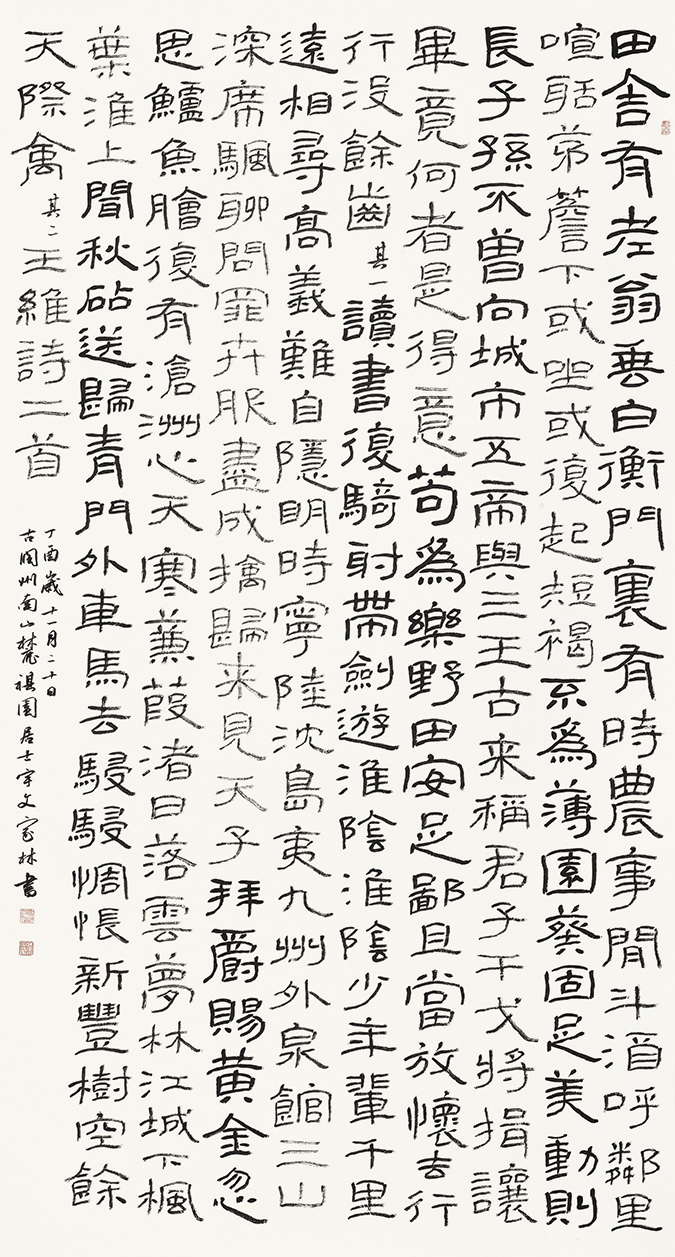 田舍有老翁垂白衡門裏有時農事閒斗酒呼鄰里
喧聒茅簷下或坐或復起短褐不為薄園葵固足美動則
長子孫不曾向城市五帝與三王古来稱君子干戈將揖讓
畢竟何者是得意苟為樂野田安足鄙且當放懷去行
行没餘齒其一讀書復騎射帶劍遊淮陰淮陰少年輩千里
遠相尋高義難自隱明時寧陸沈島夷九州外泉館三山
深席颿聊問罪卉服盡成擒歸来見天子拜爵賜黃金忽
思鱸魚膾復有滄洲心天寒蒹葭渚日落雲夢林江城下楓
葉淮上聞秋砧送歸青門外車馬去駸駸惆悵新豐樹空餘
天際禽其二王維詩二首
丁酉歲十一月二十日
古閬州南山麓祺園居士宇文家林書